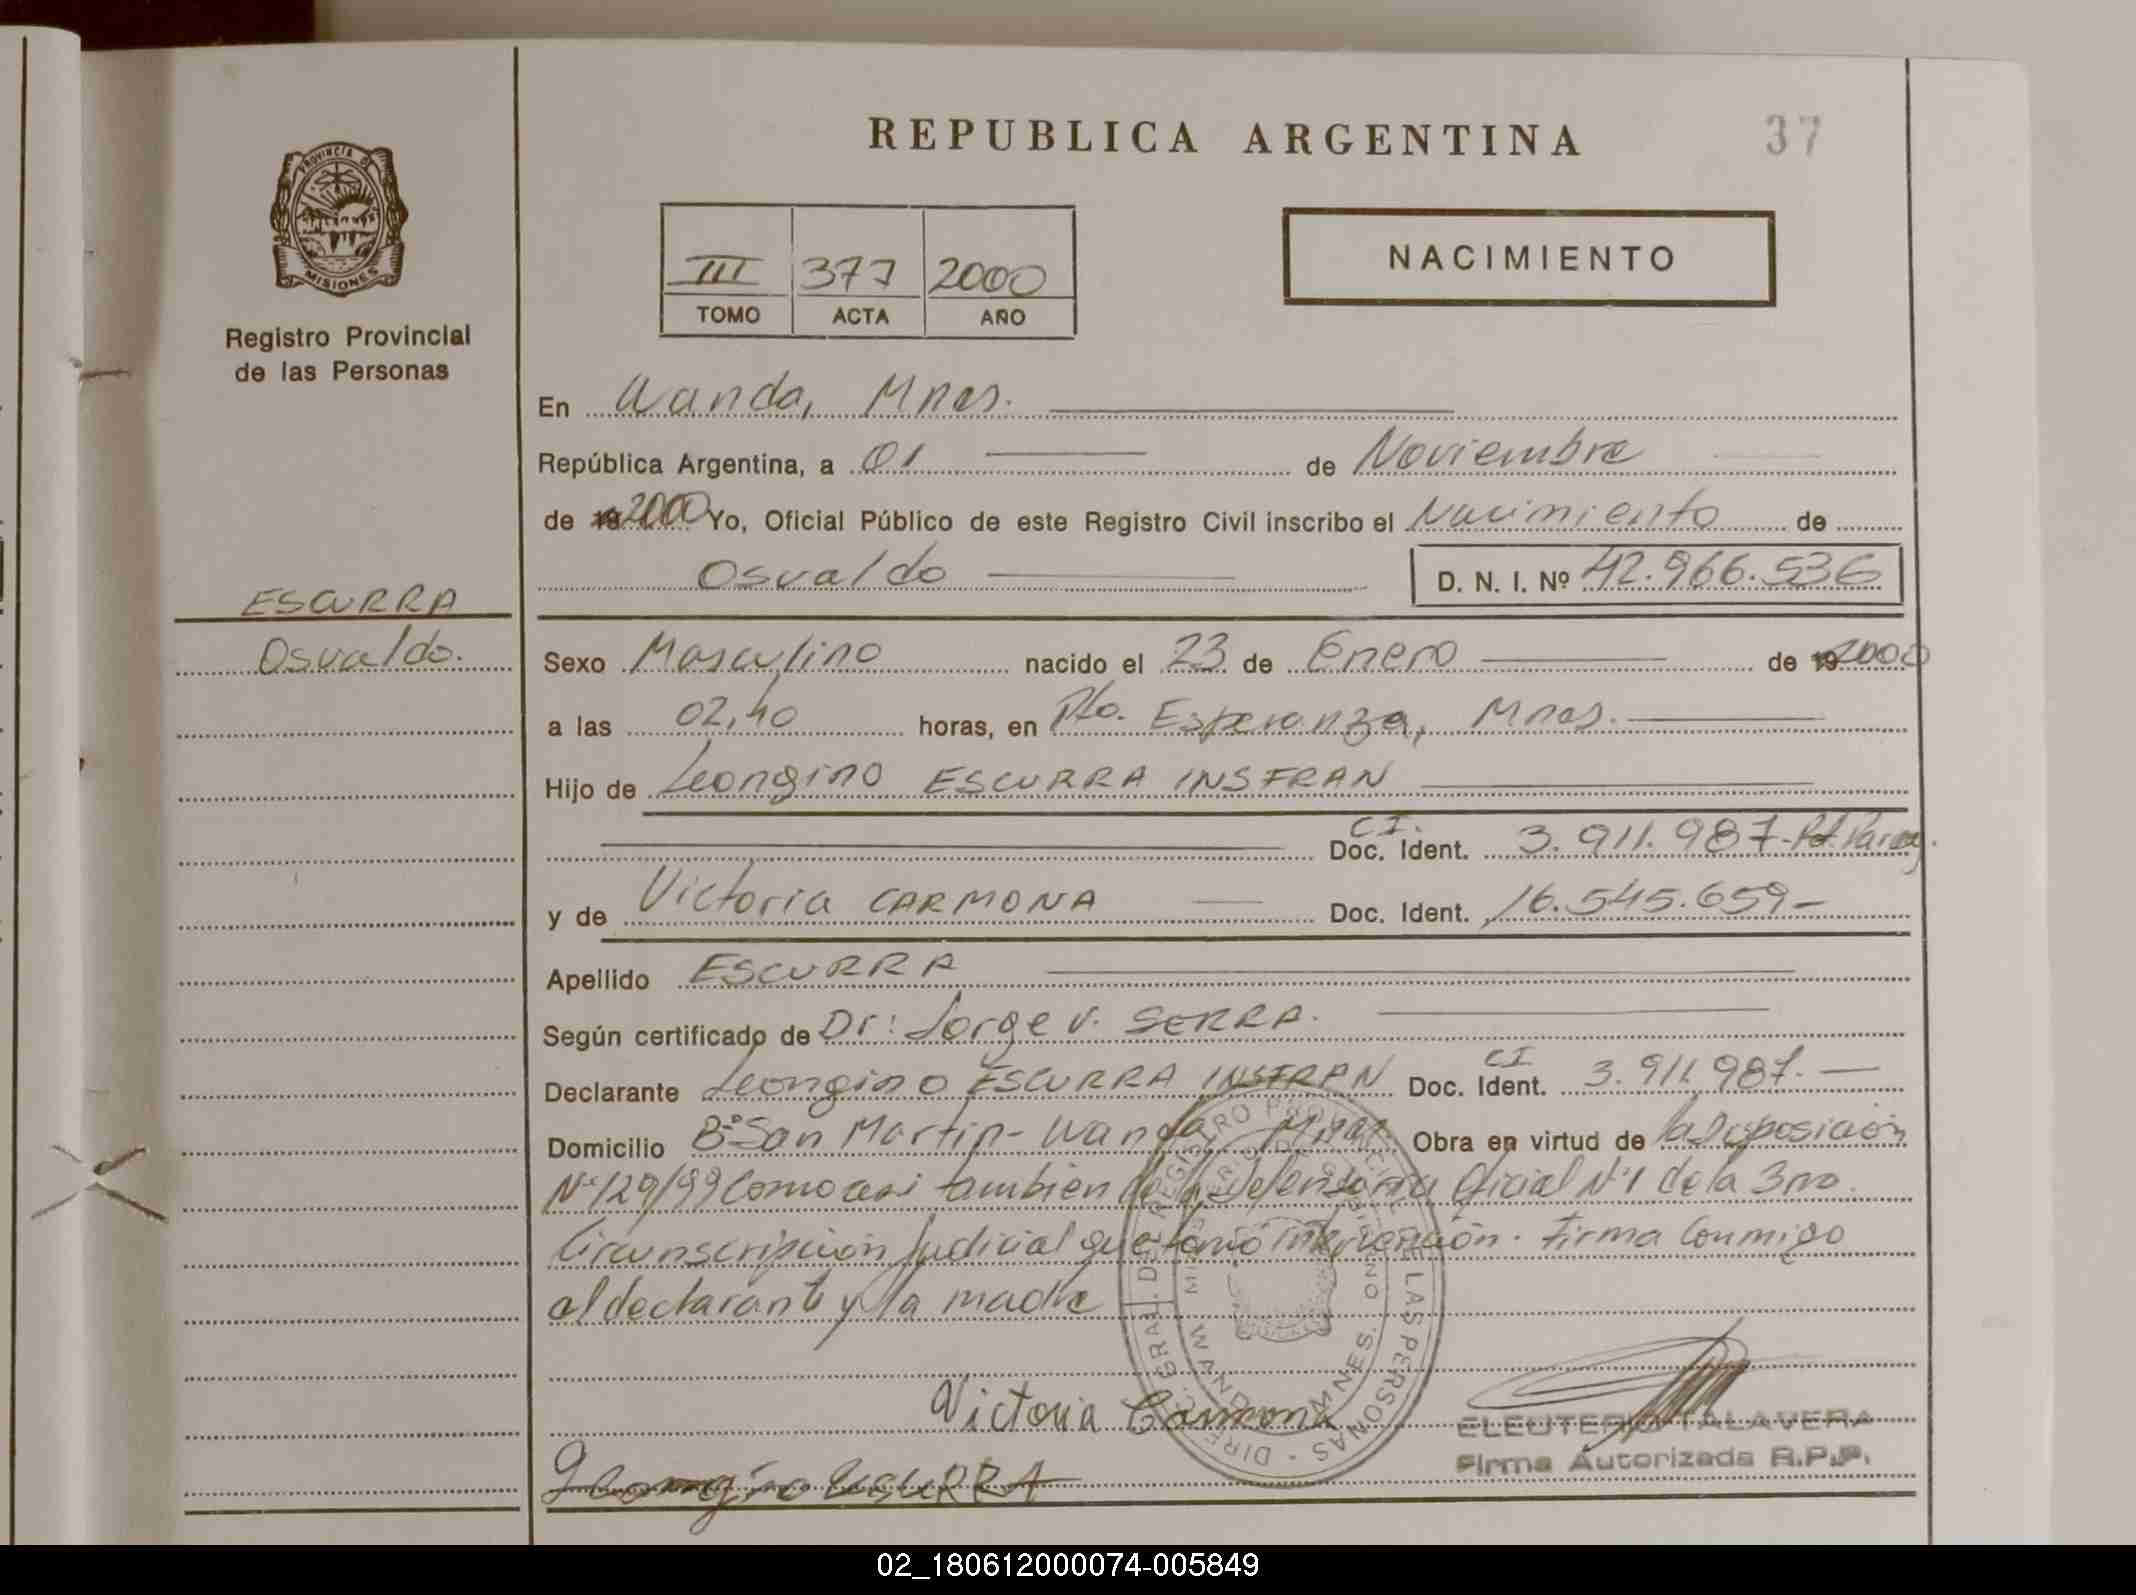 REPUBLICA ARGENTINA
37
PROVINCIA DE
MISIONES
Registro Provincial
de las Personas
III 377 2000
TOMO ACTA AÑO
NACIMIENTO
En Wanda, Mnes.
República Argentina, a 01 de Noviembre
de 19 2000 Yo, Oficial Público de este Registro Civil inscribo el Nacimiento de
Osvaldo D. N. I. Nº 42.966.536
ESCURRA
Osvaldo.
Sexo Masculino nacido el 23 de Enero de 19 2000
a las 02,40 horas, en Pto. Esperanza, Mnes.
Hijo de Leongino ESCURRA INSFRAN
CI.
Doc. Ident. 3.911.987-
y de Victoria CARMONA Doc. Ident. 16.545.659-
Apellido ESCURRA
Según certificado de Dr: Jorge V. SERRA.
CI
Declarante Leongino ESCURRA INSFRAN Doc. Ident. 3.911.987.-
Domicilio Bº San Martin - Wanda, Mnes. Obra en virtud de la Disposición
Nº 129/99 Como asi tambien de la Defensoria Oficial Nº1 de la 3ra.
Circunscripción Judicial que tomó intervención. Firma Conmigo
el declarante y la madre
DIREC. GRAL. DEL REGISTRO PROVINCIAL DE LAS PERSONAS
MINISTERIO DE GOBIERNO
WANDA MNES.
Victoria Carmona
ELEUTERIO TALAVERA
Firma Autorizada R.P.P.
Leongino EscuRRA
02_180612000074-005849